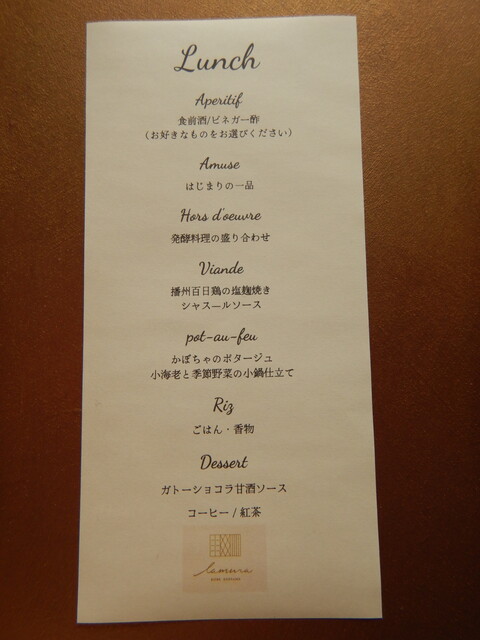 Lunch
Aperitif
食前酒/ビネガー酢
（お好きなものをお選びください）
Amuse
はじまりの一品
Hors d'oeuvre
発酵料理の盛り合わせ
Viande
播州百日鶏の塩麹焼き
シャスールソース
pot-au-feu
かぼちゃのポタージュ
小海老と季節野菜の小鍋仕立て
Riz
ごはん・香物
Dessert
ガトーショコラ甘酒ソース
コーヒー / 紅茶
Lamura